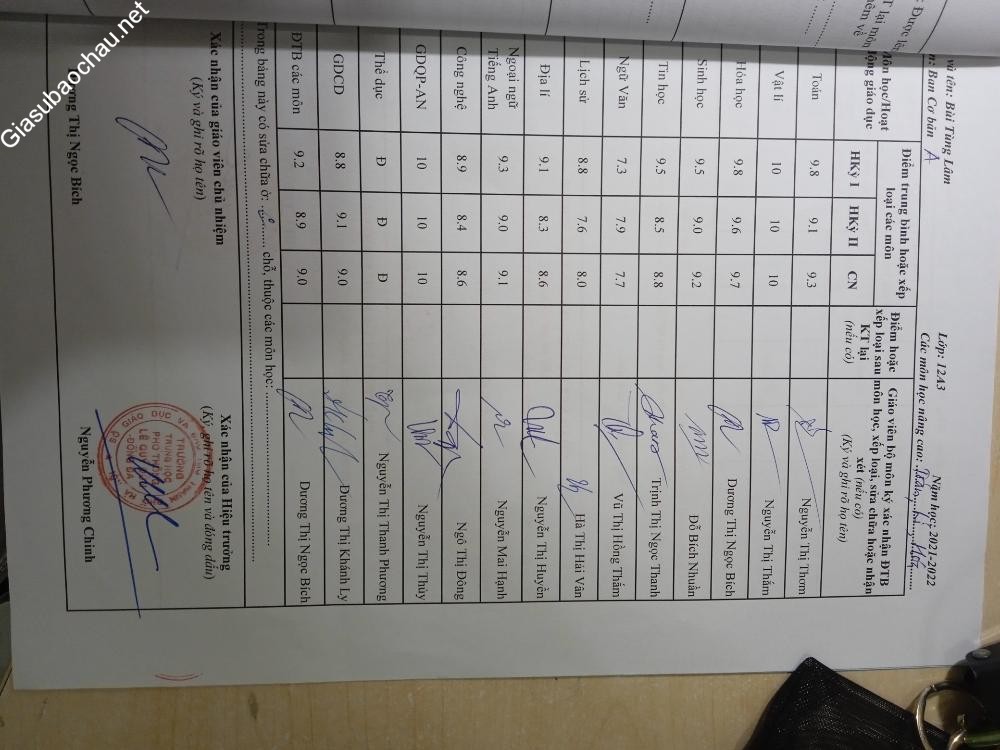 Giasubaochau.net
: Được lê
T lại môn
hêm về
và tên: Bùi Tùng Lâm
Lớp: 12A3
Năm học: 2021-2022
n: Ban Cơ bản A
Các môn học nâng cao:
Môn học/Hoạt động giáo dục
Điểm trung bình hoặc xếp loại các môn
Điểm hoặc xếp loại sau KT lại (nếu có)
Giáo viên bộ môn ký xác nhận ĐTB môn học, xếp loại, sửa chữa hoặc nhận xét (nếu có)
(Ký và ghi rõ họ tên)
HKỳ I HKỳ II CN
Toán 9.8 9.1 9.3 Nguyễn Thị Thơm
Vật lí 10 10 10 Nguyễn Thị Thắm
Hóa học 9.8 9.6 9.7 Dương Thị Ngọc Bích
Sinh học 9.5 9.0 9.2 Đỗ Bích Nhuần
Tin học 9.5 8.5 8.8 Trịnh Thị Ngọc Thanh
Ngữ Văn 7.3 7.9 7.7 Vũ Thị Hồng Thắm
Lịch sử 8.8 7.6 8.0 Hà Thị Hải Vân
Địa lí 9.1 8.3 8.6 Nguyễn Thị Huyền
Ngoại ngữ Tiếng Anh 9.3 9.0 9.1 Nguyễn Mai Hạnh
Công nghệ 8.9 8.4 8.6 Ngô Thị Đông
GDQP-AN 10 10 10 Nguyễn Thị Thủy
Thể dục Đ Đ Đ Nguyễn Thị Thanh Phương
GDCD 8.8 9.1 9.0 Dương Thị Khánh Ly
ĐTB các môn 9.2 8.9 9.0 Dương Thị Ngọc Bích
Trong bảng này có sửa chữa ở: ........ chỗ, thuộc các môn học: ........
Xác nhận của giáo viên chủ nhiệm
(Ký và ghi rõ họ tên)
Xác nhận của Hiệu trưởng
(Ký, ghi rõ họ tên và đóng dấu)
TRƯỜNG
TRUNG HỌC
PHỔ THÔNG
LÊ QUÝ
-ĐỐNG ĐA
ương Thị Ngọc Bích
Nguyễn Phương Chinh